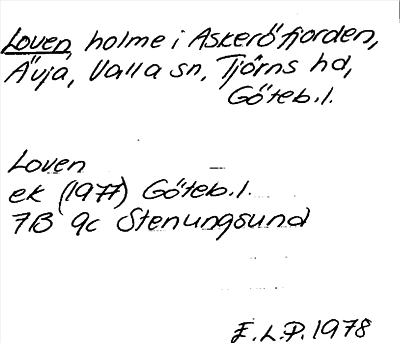 Loven, holme i Askeröfjorden,
Åvja, Valla sn, Tjörns hd,
Göteb.l.
Loven
ek (1977) Göteb.l.
7B 9c Stenungsund
E.L.P. 1978